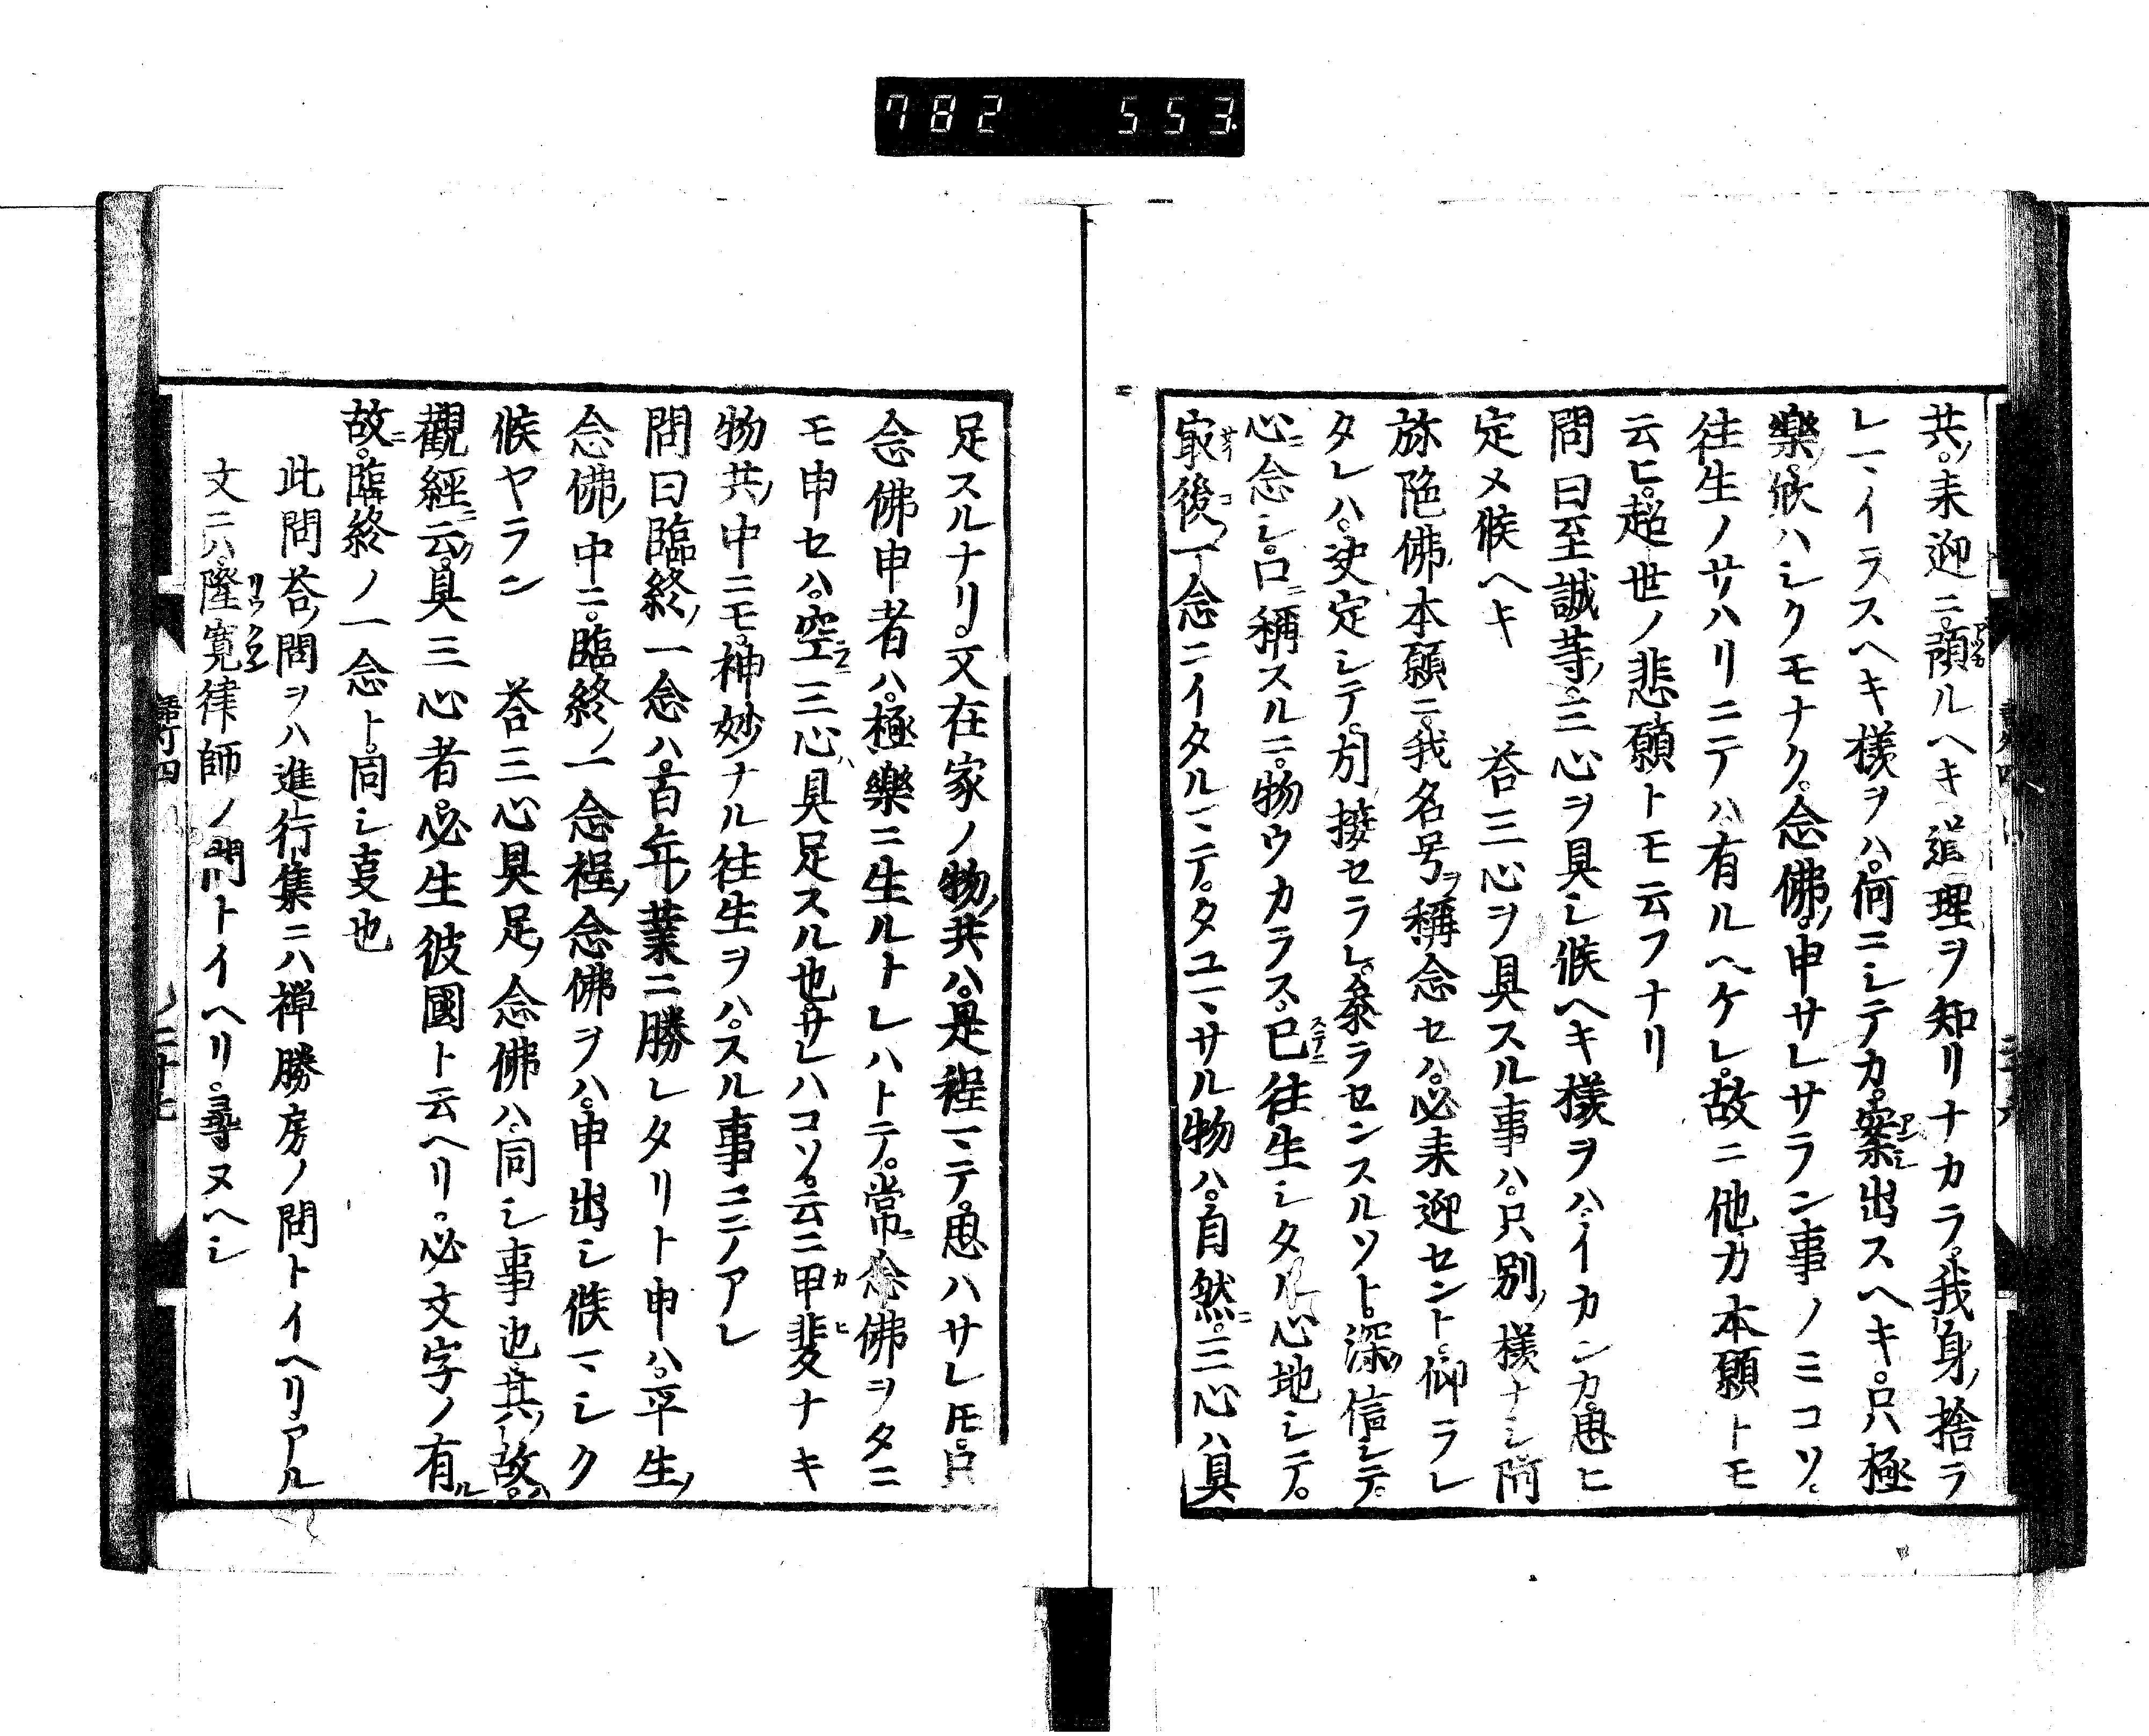 782 553
共ノ來迎ニ預ルヘキ道理ヲ知リナカラ我身ノ捨ラ
レマイラスヘキ樣ヲハ何ニシテカ案シ出スヘキ只極
樂ノ欣ハシクモナク念佛ノ申サレサラン事ノミコソ
往生ノサハリニテハ有ルヘケレ故ニ他力本願トモ
云ヒ超世ノ悲願トモ云フナリ
問曰至誠等ノ三心ヲ具シ候ヘキ樣ヲハイカンカ思ヒ
定メ候ヘキ 荅三心ヲ具スル事ハ只別ノ樣ナシ阿
弥陁佛ノ本願ニ我名号ヲ稱念セハ必來迎セント仰ラレ
タレハ决定シテ引接セラレ參ラセンスルソト深ク信シテ
心ニ念シ口ニ稱スルニ物ウカラス已ニ往生シタル心地シテ
最後一念ニイタルマテタユマサル物ハ自然ニ三心ハ具
足スルナリ又在家ノ物共ハ是程マテ思ハサレ𪜈只
念佛申者ハ極樂ニ生ルトレハトテ常ニ念佛ヲタニ
モ申セハ空ニ三心ハ具足スル也サレハコソ云ニ甲斐ナキ
物共ノ中ニモ神妙ナル往生ヲハスル事ニテアレ
問曰臨終ノ一念ハ百年ノ業ニ勝レタリト申ハ平生ノ
念佛ノ中ニ臨終ノ一念程ノ念佛ヲハ申出シ候マシク
候ヤラン 荅三心具足ノ念佛ハ同シ事也其ノ故ハ
觀經ニ云ク具三心者必生彼國ト云ヘリ必文字ノ有ル
故ニ臨終ノ一念ト同シ事也
此問荅ノ問ヲハ進行集ニハ禅勝房ノ問トイヘリアル
文ニハ隆寛律師ノ問トイヘリ尋ヌヘシ